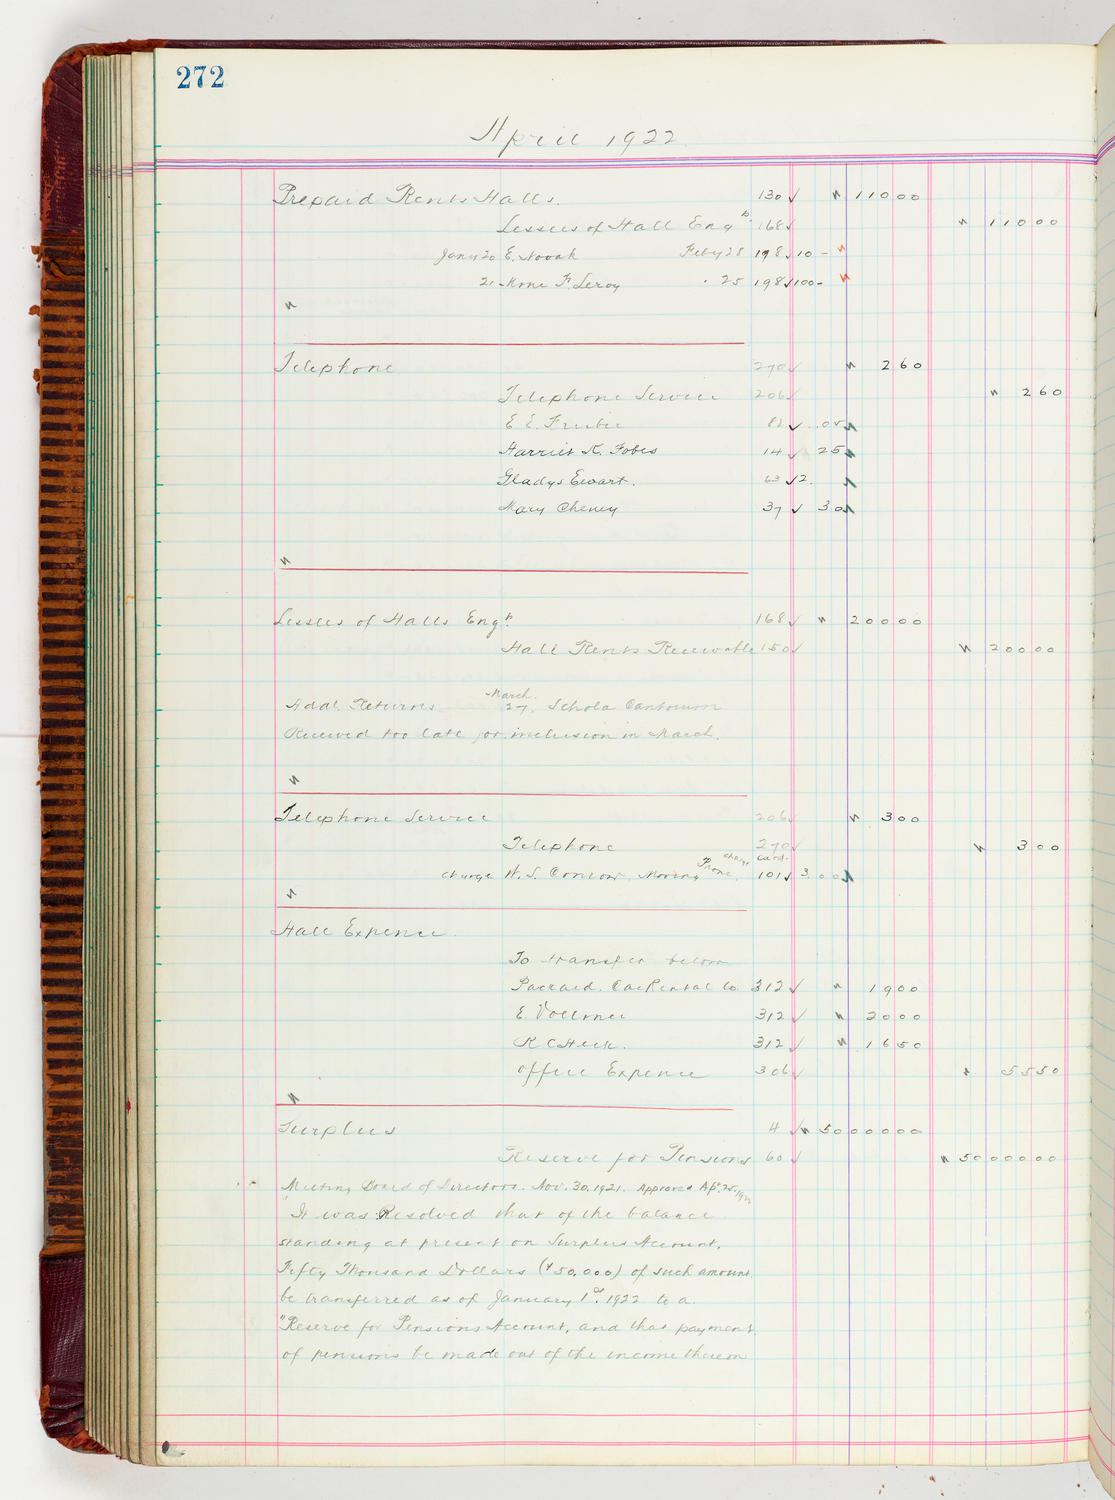 272
April 1922
Prepaid Rents Halls. 130 ✓ 110 00
Lessees of Hall Eng 168 ✓ 110 00
Jany 20 E. Novak Feby 28 198 ✓ 10 -
21 F. Leroy . 25 198 ✓ 100 -
Telephone 270 ✓ 2 60
Telephone Service 206 ✓ 2 60
E E. 82 ✓ .05
Harriet K. Fobes 14 ✓ 25
Gladys Ewart. 63 ✓ 2.
Mary Cheney 37 ✓ 30
Lessees of Halls Eng 168 ✓ 200 00
Hall Rents Receivable 150 ✓ 200 00
March.
Addl. Returns 27. Schola Cantorum
Received too late for inclusion in March.
Telephone Service 206 ✓ 3 00
Telephone 270 ✓ 3 00
charge card.
charge Moving Phone. 101 ✓ 3.00
Hall Expense.
To transfer below
Packard. Car Rental Co 312 ✓ 19 00
E. Vollmer 312 ✓ 20 00
R C Heck. 312 ✓ 16 50
Office Expense 306 ✓ 55 50
Surplus 4 ✓ 50 000 00
Reserve for Pensions 60 ✓ 50 000 00
Meeting Board of Directors. Nov. 30, 1921. Approved Ap. 25, 1922
"It was Resolved that of the balance
standing at present on Surplus Account,
Fifty Thousand Dollars ($50,000) of such amount
be transferred as of January 1st. 1922 to a
"Reserve for Pensions Account, and that payment
of pensions be made out of the income thereon